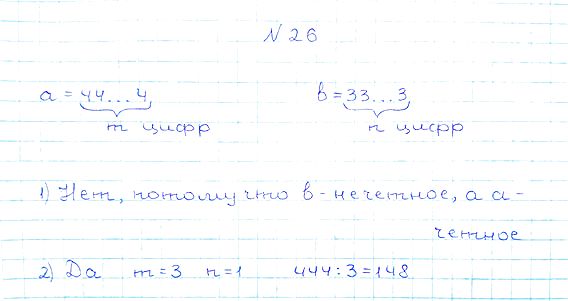 № 26
a = 44...4 b = 33...3
m цифр n цифр
1) Нет, потому что b - нечетное, а a -
четное
2) Да m = 3 n = 1 444 : 3 = 148